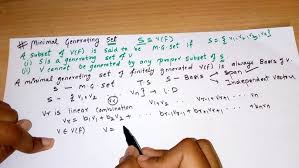 # Minimal Generating Set S ⊆ V(F)
A subset of V(F) is said to be M.G. set if S = {v₁, v₂, v₃, v₄}
(i) S is a generating set of V
(ii) V cannot be generated by any proper subset of S
A minimal generating set of finitely generated V(F) is always Basis
S - M.G.S T.S S - Basis Span
Independent vector
S = {v₁ v₂ ... vn} → L.D
vr is linear combination v₁, v₂ ... vr-1, vr+1 ... vn
vr = b₁v₁ + b₂v₂ + ... br-1vr-1 + br+1vr+1 ... + bnvn
v ∈ V(F) v =